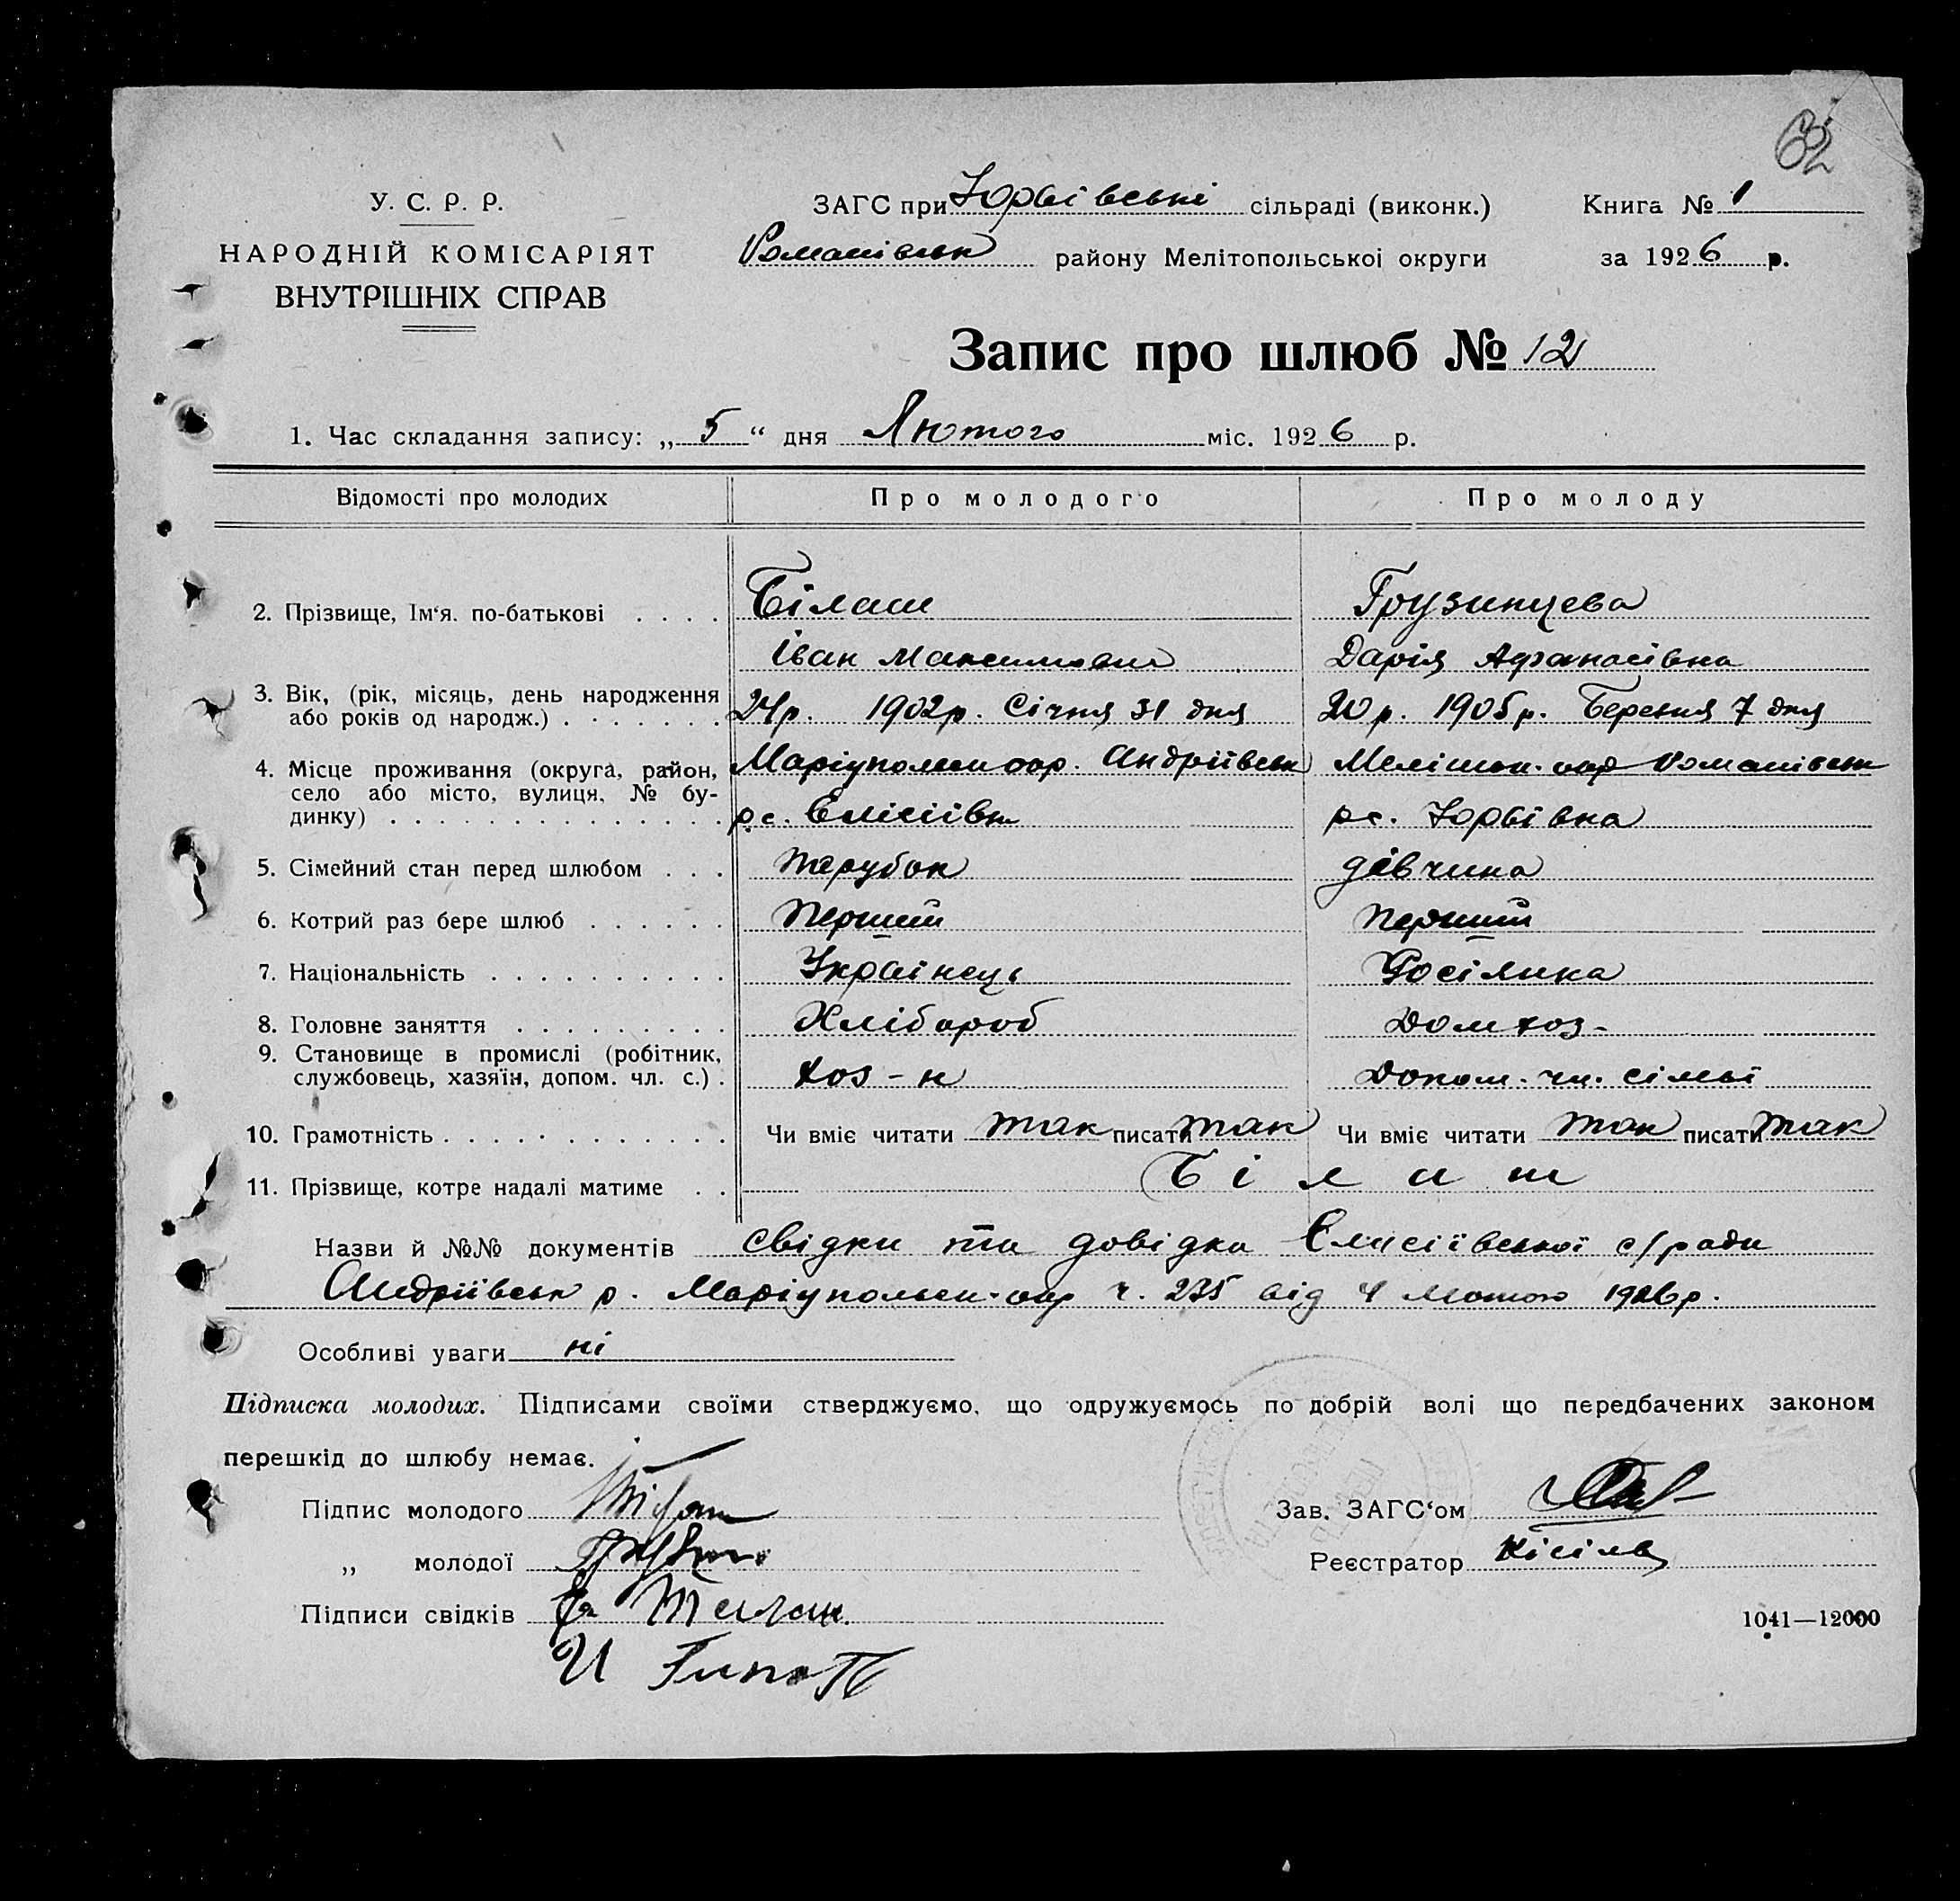 62
У. С. Р. Р.
НАРОДНІЙ КОМІСАРІЯТ
ВНУТРІШНІХ СПРАВ
ЗАГС при Юрвівські сільраді (виконк.)
Романівськ району Мелітопольської округи
Книга № 1
за 1926 р.
Запис про шлюб № 12
1. Час складання запису: „ 5 “ дня Лютого міс. 1926 р.
Відомості про молодих Про молодого Про молоду
2. Прізвище, Ім‘я. по-батькові . . . . Білаш Грузинцева
Іван Максимович Дарія Афанасівна
3. Вік, (рік, місяць, день народження
або років од народж.) . . . . . . . 24р. 1902р. Січня 31 дня 20р. 1905р. Березня 7 дня
4. Місце проживання (округа, район, Маріупольськ окр. Андріївськ Мелітоп. окр Романівськ
село або місто, вулиця, № бу-
динку) . . . . . . . . . . . . . . р с. Елісіівк рс. Юрвівка
5. Сімейний стан перед шлюбом . . . парубок дівчина
6. Котрий раз бере шлюб . . . . . . Перший перший
7. Національність . . . . . . . . . . Українець Росіянка
8. Головне заняття . . . . . . . . . Хлібороб Домхоз-
9. Становище в промислі (робітник,
службовець, хазяїн, допом. чл. с.) . хоз-н Допом. чл. сімьі
10. Грамотність . . . . . . . . . . . . Чи вміє читати так писати так Чи вміє читати так писати так
11. Прізвище, котре надалі матиме . . Білаш
Назви й №№ документів свідки та довідка Єлисіївської с/ради
Андріївськ р. Маріупольськ. окр ч. 235 від 4 лютого 1926р.
Особливі уваги ні
Підписка молодих. Підписами своїми стверджуємо, що одружуємось по добрій волі що передбачених законом
перешкід до шлюбу немає.
Підпис молодого
Зав. ЗАГС‘ом
„ молодої
Реєстратор Кісіль
Підписи свідків
1041—12000